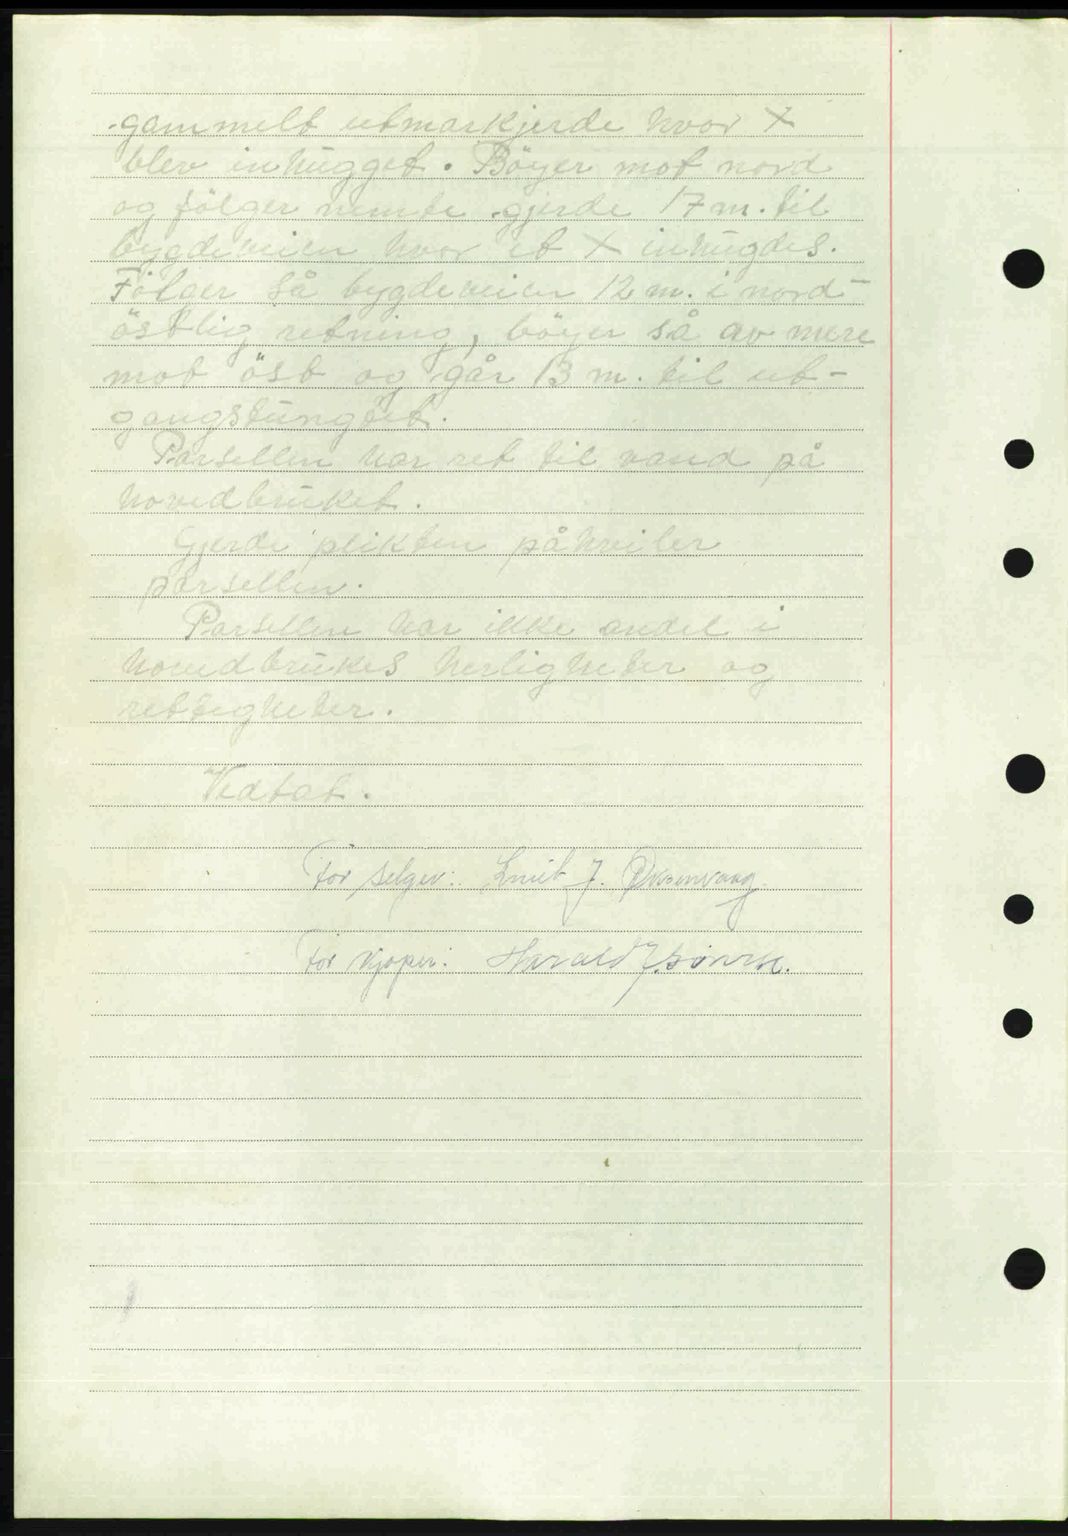 gammelt utmarkjerde hvor X
blev inhugget. Böyer mot nord
og fölger nemte gjerde 17 m. til
bygdeveien hvor et X inhugdes.
Fölger så bygdeveien 12 m. i nord-
östlig retning, böyer så av mere
mot öst og går 13 m. til ut-
gangspungtet.
Parsellen har ret til vand på
hovedbruket.
Gjerde plikten påhviler
parsellen.
Parsellen har ikke andel i
hovedbrukes herligheter og
rettigheter.
Vedtat.
For selger: J.
For kjøper: Harald J.